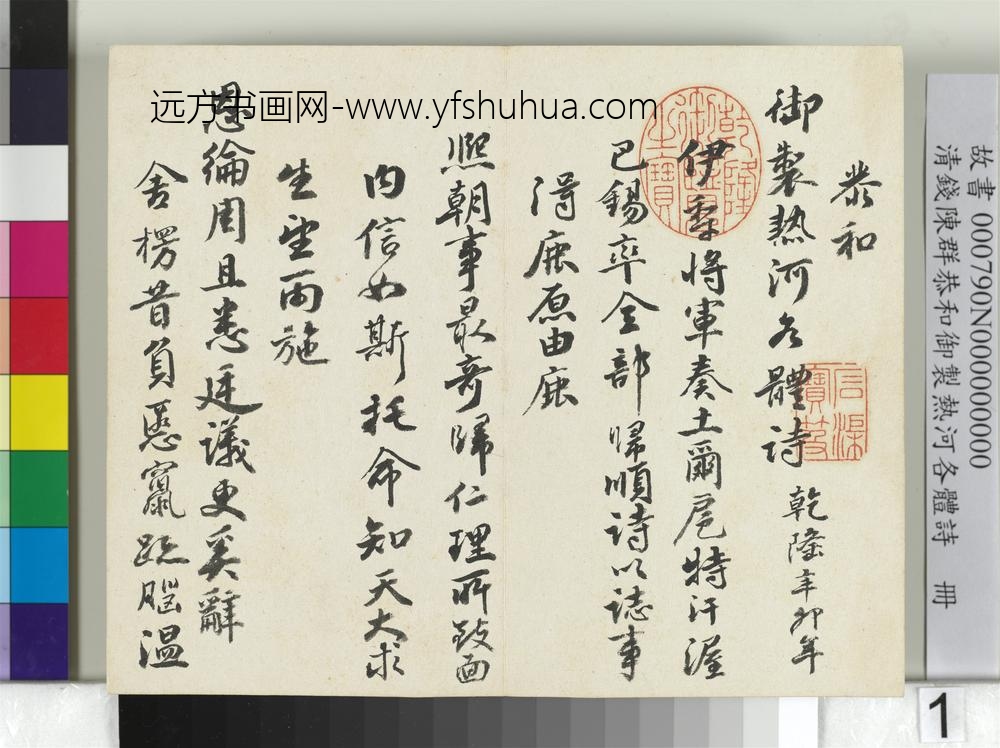 远方书画网-www.yfshuhua.com
恭和
御製熱河各體詩 乾隆辛卯年
伊犂將軍奏土爾扈特汗渥
巴錫率全部歸順詩以誌事
得鹿原由鹿
熙朝事最奇歸仁理所致面
内信如斯托命知天大求
生望雨施
恩綸周且悉廷議史奚辭
舍楞昔負慝竄跡腦溫
乾隆御覽之寶
故書 000790N000000000
清錢陳群恭和御製熱河各體詩 冊
1